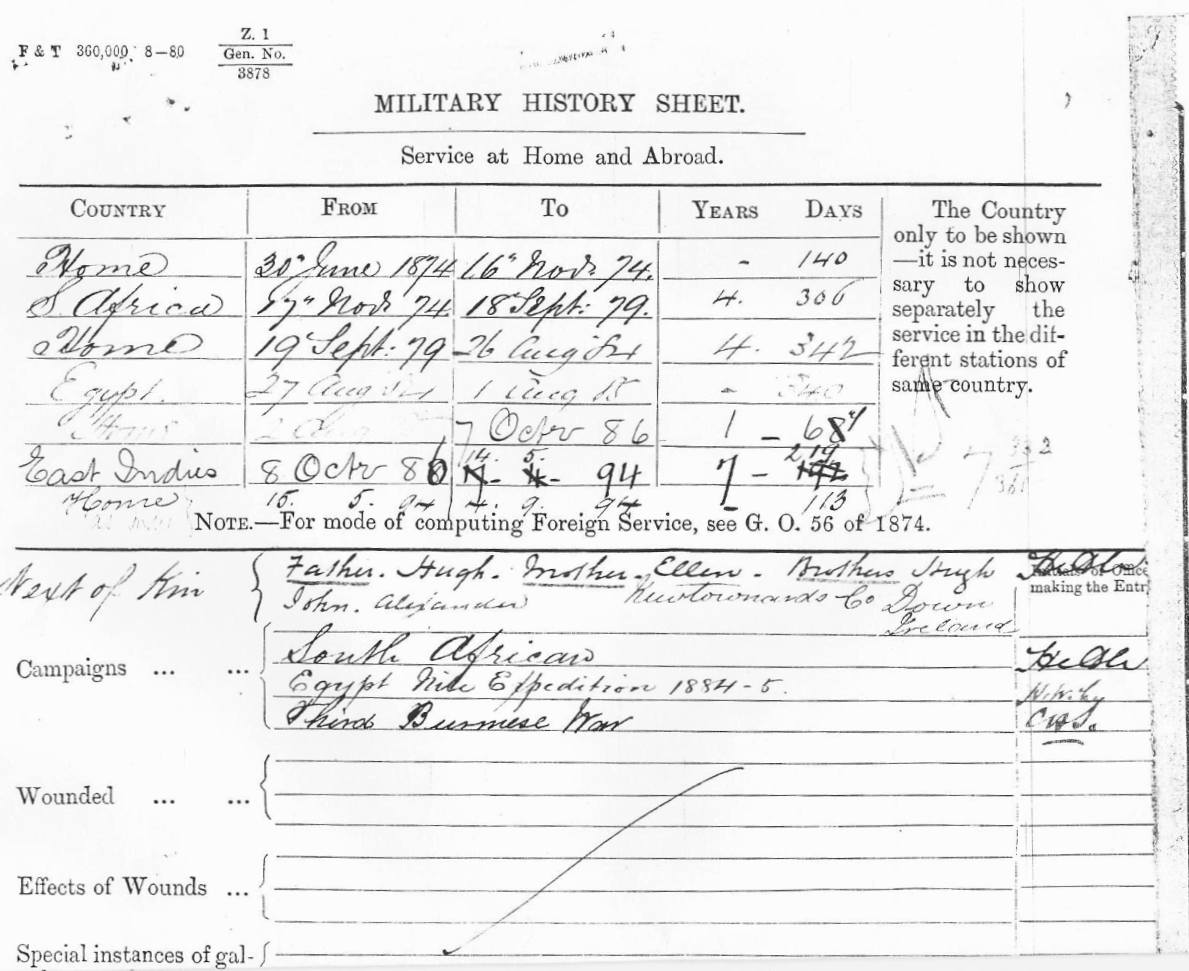 F & T 360,000 8–80
Z. 1
Gen. No.
3878
MILITARY HISTORY SHEET.
Service at Home and Abroad.
COUNTRY FROM TO YEARS DAYS
Home 30" June 1874 16" Novr 74. - 140
S. Africa 17" Novr 74 18 Sept: 79. 4. 306
Home 19 Sept: 79 26 Aug 84 4. 342
Egypt. 27 Aug 84 1 Aug 85 - 340
Home 2 Aug 7 Octr 86 1 - 68
East Indies 8 Octr 86 14. 5. 94 7 - 219
Home 15. 5. 94 4. 9. 94 - 113
The Country
only to be shown
—it is not neces-
sary to show
separately the
service in the dif-
ferent stations of
same country.
NOTE.—For mode of computing Foreign Service, see G. O. 56 of 1874.
Next of Kin
Father. Hugh. Mother. Ellen. Brothers Hugh
John. Alexander Newtownards Co Down
Ireland
making the Entr
Campaigns ... ...
South African
Egypt Nile Expedition 1884-5.
Third Burmese War
Wounded ... ...
Effects of Wounds ...
Special instances of gal-